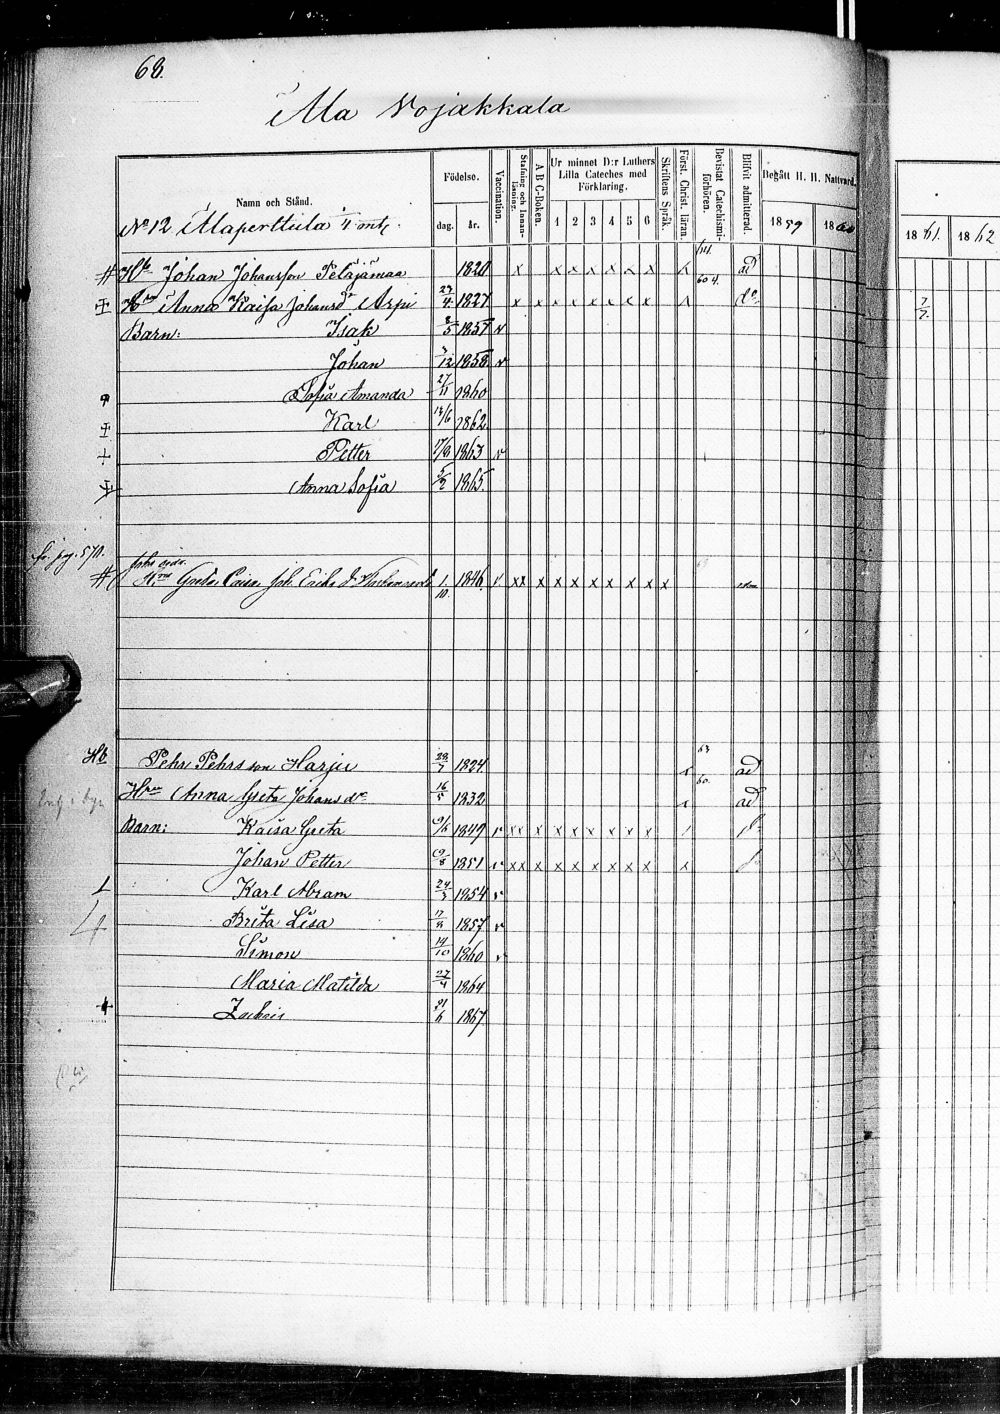 68.
Ala Vojakkala
Namn och Stånd.
Födelse.
dag. år.
Vaccination.
Stafning och Innanläsning.
A B C-Boken.
Ur minnet D:r Luthers Lilla Cateches med Förklaring.
1 2 3 4 5 6
Skriftens Språk.
Först. Christ. läran.
Bevistat Catechismiförhören.
Blifvit admitterad.
Begått H. H. Nattvard.
1859 1860
1861. 1862
No 12 Alaperttula
Johan Johansson Pelajamaa 1820 x x x x x x x ad
Anna Kaisa Johansdr Arpi 23/4 1827 x x x x x x x x
7/7
Barn: Isak 3/5 1857 v
Johan 3/12 1858 v
Sofia Amanda 27/11 1860
Karl 1862
Petter 17/9 1863 v
Anna Sofia 5/2 1865.
Greta Caisa 1/10. 1846 v xx x x x x x x x x
Hb Pehr Pehrsson Harju 1824 63 ad
Anna Greta Johansdr 16/5 1832 60 ad
Barn: Kaisa Greta 1849 v xx x x x x x x x
Johan Petter 1851 v xx x x x x x x x x
Karl Abram 1854 v
Brita Lisa 1857 v
Simon 19/10 1860 v
Maria Matilda 27/4 1864
1867